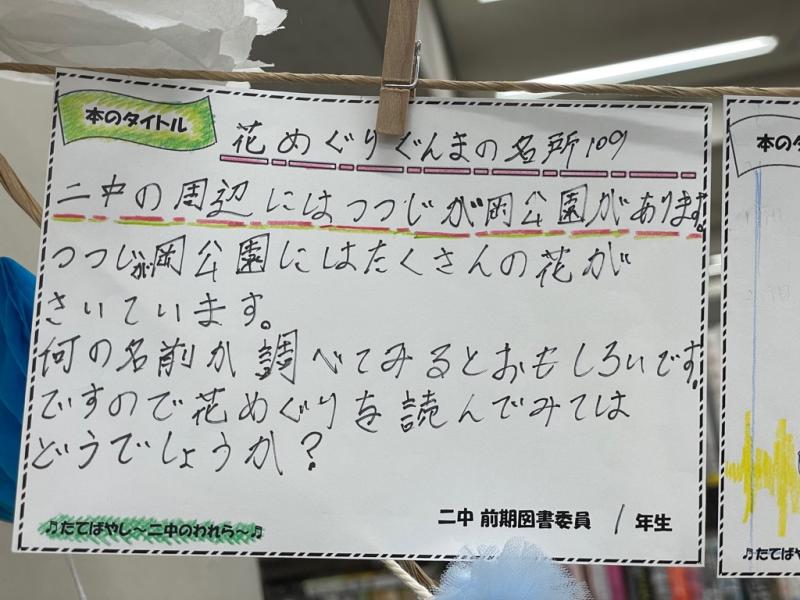 本のタイトル
花めぐりぐんまの名所109
二中の周辺にはつつじが岡公園があります。
つつじが岡公園にはたくさんの花が
さいています。
何の名前か調べてみるとおもしろいです。
ですので花めぐりを読んでみては
どうでしょうか?
二中 前期図書委員 1年生
♫たてばやし〜二中のわれら〜♫
本の
♫たてば